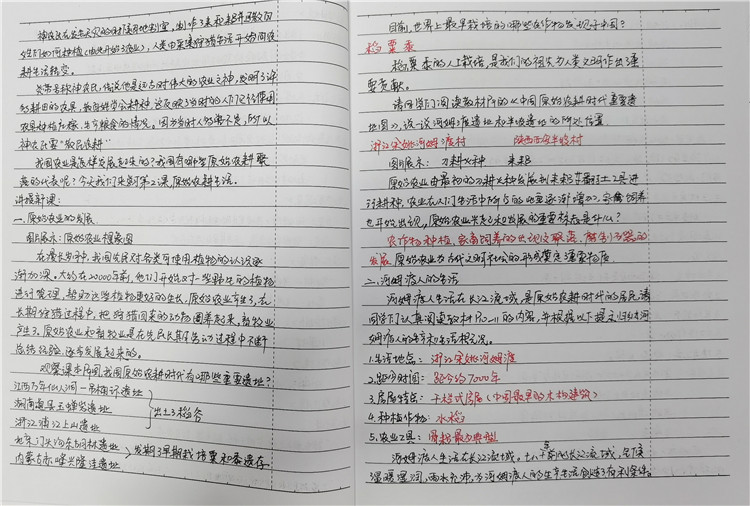 神农氏在
姓们如何种植(由此开创了农业),人类由采集狩猎生活开始向农
耕生活转变。
炎帝号称神农氏,传说他是远古时伟大的农业之神,发明了许
多耕田的农具,教百姓学会耕种,它反映当时的人们已经使用
农具种植庄稼,生产粮食的情况。因为当时人
神农氏要"教民农耕"
我国农业是怎样发展起来的?我国有哪些原始农耕聚
落的代表呢?今天我们来学习第2课原始农耕生活。
讲授新课:
一.原始农业的发展
图片展示:原始农业想象图
在漫长岁月中,我国先民对各类可使用植物的认识逐
渐加深,大约在12000年前,他们开始对一些野生的植物
进行管理,帮助这些植物更好的生长,原始农业产生了,在
长期狩猎过程中,把狩猎回来的动物圈养起来,畜牧业
产生了。原始农业和畜牧业是在先民长期劳动过程中不断
总结经验,逐步发展起来的。
观察课本,向同我国原始农耕时代有哪些重要遗址?
江西万年仙人洞—吊桶环遗址
湖南道县玉蟾岩遗址
浙江浦江上山遗址
出土了稻谷
北京门头沟东胡林遗址
内蒙古赤峰兴隆洼遗址
发掘了早期栽培粟和黍遗存
目前,世界上最早栽培的哪些农作物发现于中国?
稻 粟 黍
稻粟黍的人工栽培,是我们的祖先为人类文明作出的重
要贡献。
请同学们阅读教材P9的《中国原始农耕时代重要遗
址图》,说一说河姆渡遗址和半坡遗址的所处位置
浙江余姚河姆渡村 陕西西安半坡村
图片展示: 刀耕火种 耒耜
原始农业由最初的刀耕火种发展到耒耜等翻土工具进
行耕种,农业在人们生活中所占的比重逐渐增加,家禽饲养
也开始出现,原始农业兴起和发展的重要标志是什么?
农作物种植,家畜饲养的出现及聚落,磨制石器的
发展 原始农业为古代文明社会的形成奠定了重要物质
二.河姆渡人的生活
河姆渡人生活在长江流域,是原始农耕时代的居民,请
同学们认真阅读教材P10—11的内容,并根据以下提示归纳河
姆渡人的生产和生活概况。
1.生活地点:浙江余姚河姆渡
2.距今时间:距今约7000年
3.房屋特点:干栏式房屋(中国最早的木构建筑)
4.种植作物:水稻
5.农业工具:骨耜最为典型
河姆渡人生活在长江流域,
温暖湿润,雨水充沛,为河姆渡人的生产生活创造了有利条件。